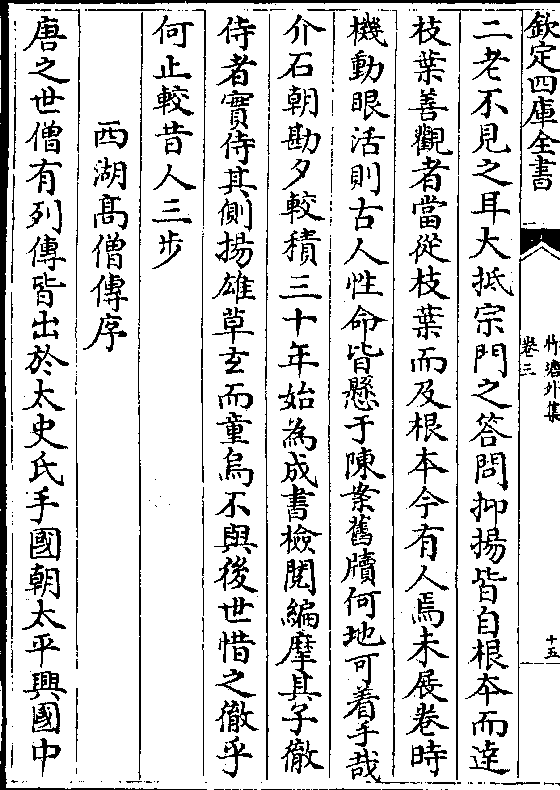 欽定四庫全書
竹溪外集
卷三
十五
二老不見之耳大抵宗門之答問抑揚皆自根本而逹
枝葉善觀者當從枝葉而及根本今有人焉未展卷時
機動眼活則古人性命皆懸于陳案舊牘何地可着手哉
介石朝勘夕較積三十年始為成書檢閲編摩其子徹
侍者實侍其側揚雄草玄而童烏不與後世惜之徹乎
何止較昔人三步
西湖髙僧傳序
唐之世僧有列傳皆出於太史氏手國朝太平興國中